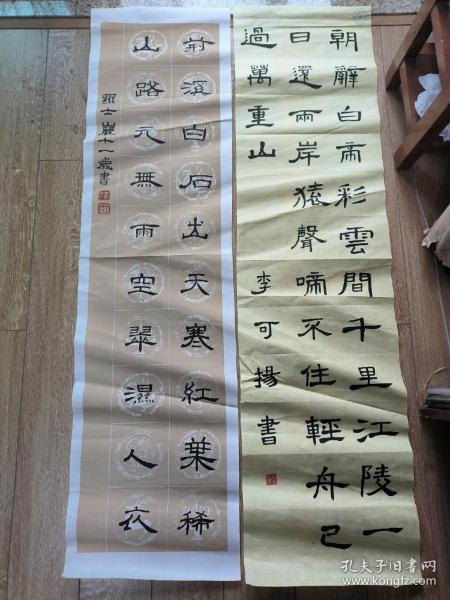 朝辭白帝彩雲間千里江陵一
日還兩岸猿聲啼不住輕舟已
過萬重山
李可揚書
荊溪白石出天寒紅葉稀
山路元無雨空翠濕人衣
羅士巖十一歲書
孔夫子旧书网
www.kongfz.com